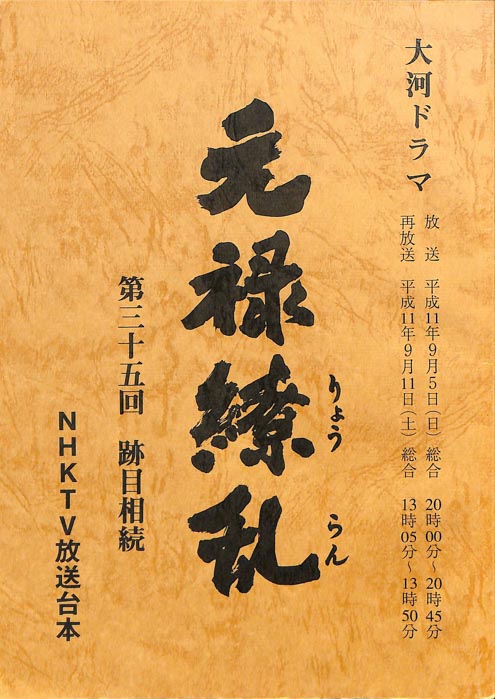 大河ドラマ
放送　平成11年9月5日（日）総合　20時00分～20時45分
再放送　平成11年9月11日（土）総合　13時05分～13時50分
元禄繚乱
りょう　らん
第三十五回　跡目相続
NHKTV放送台本